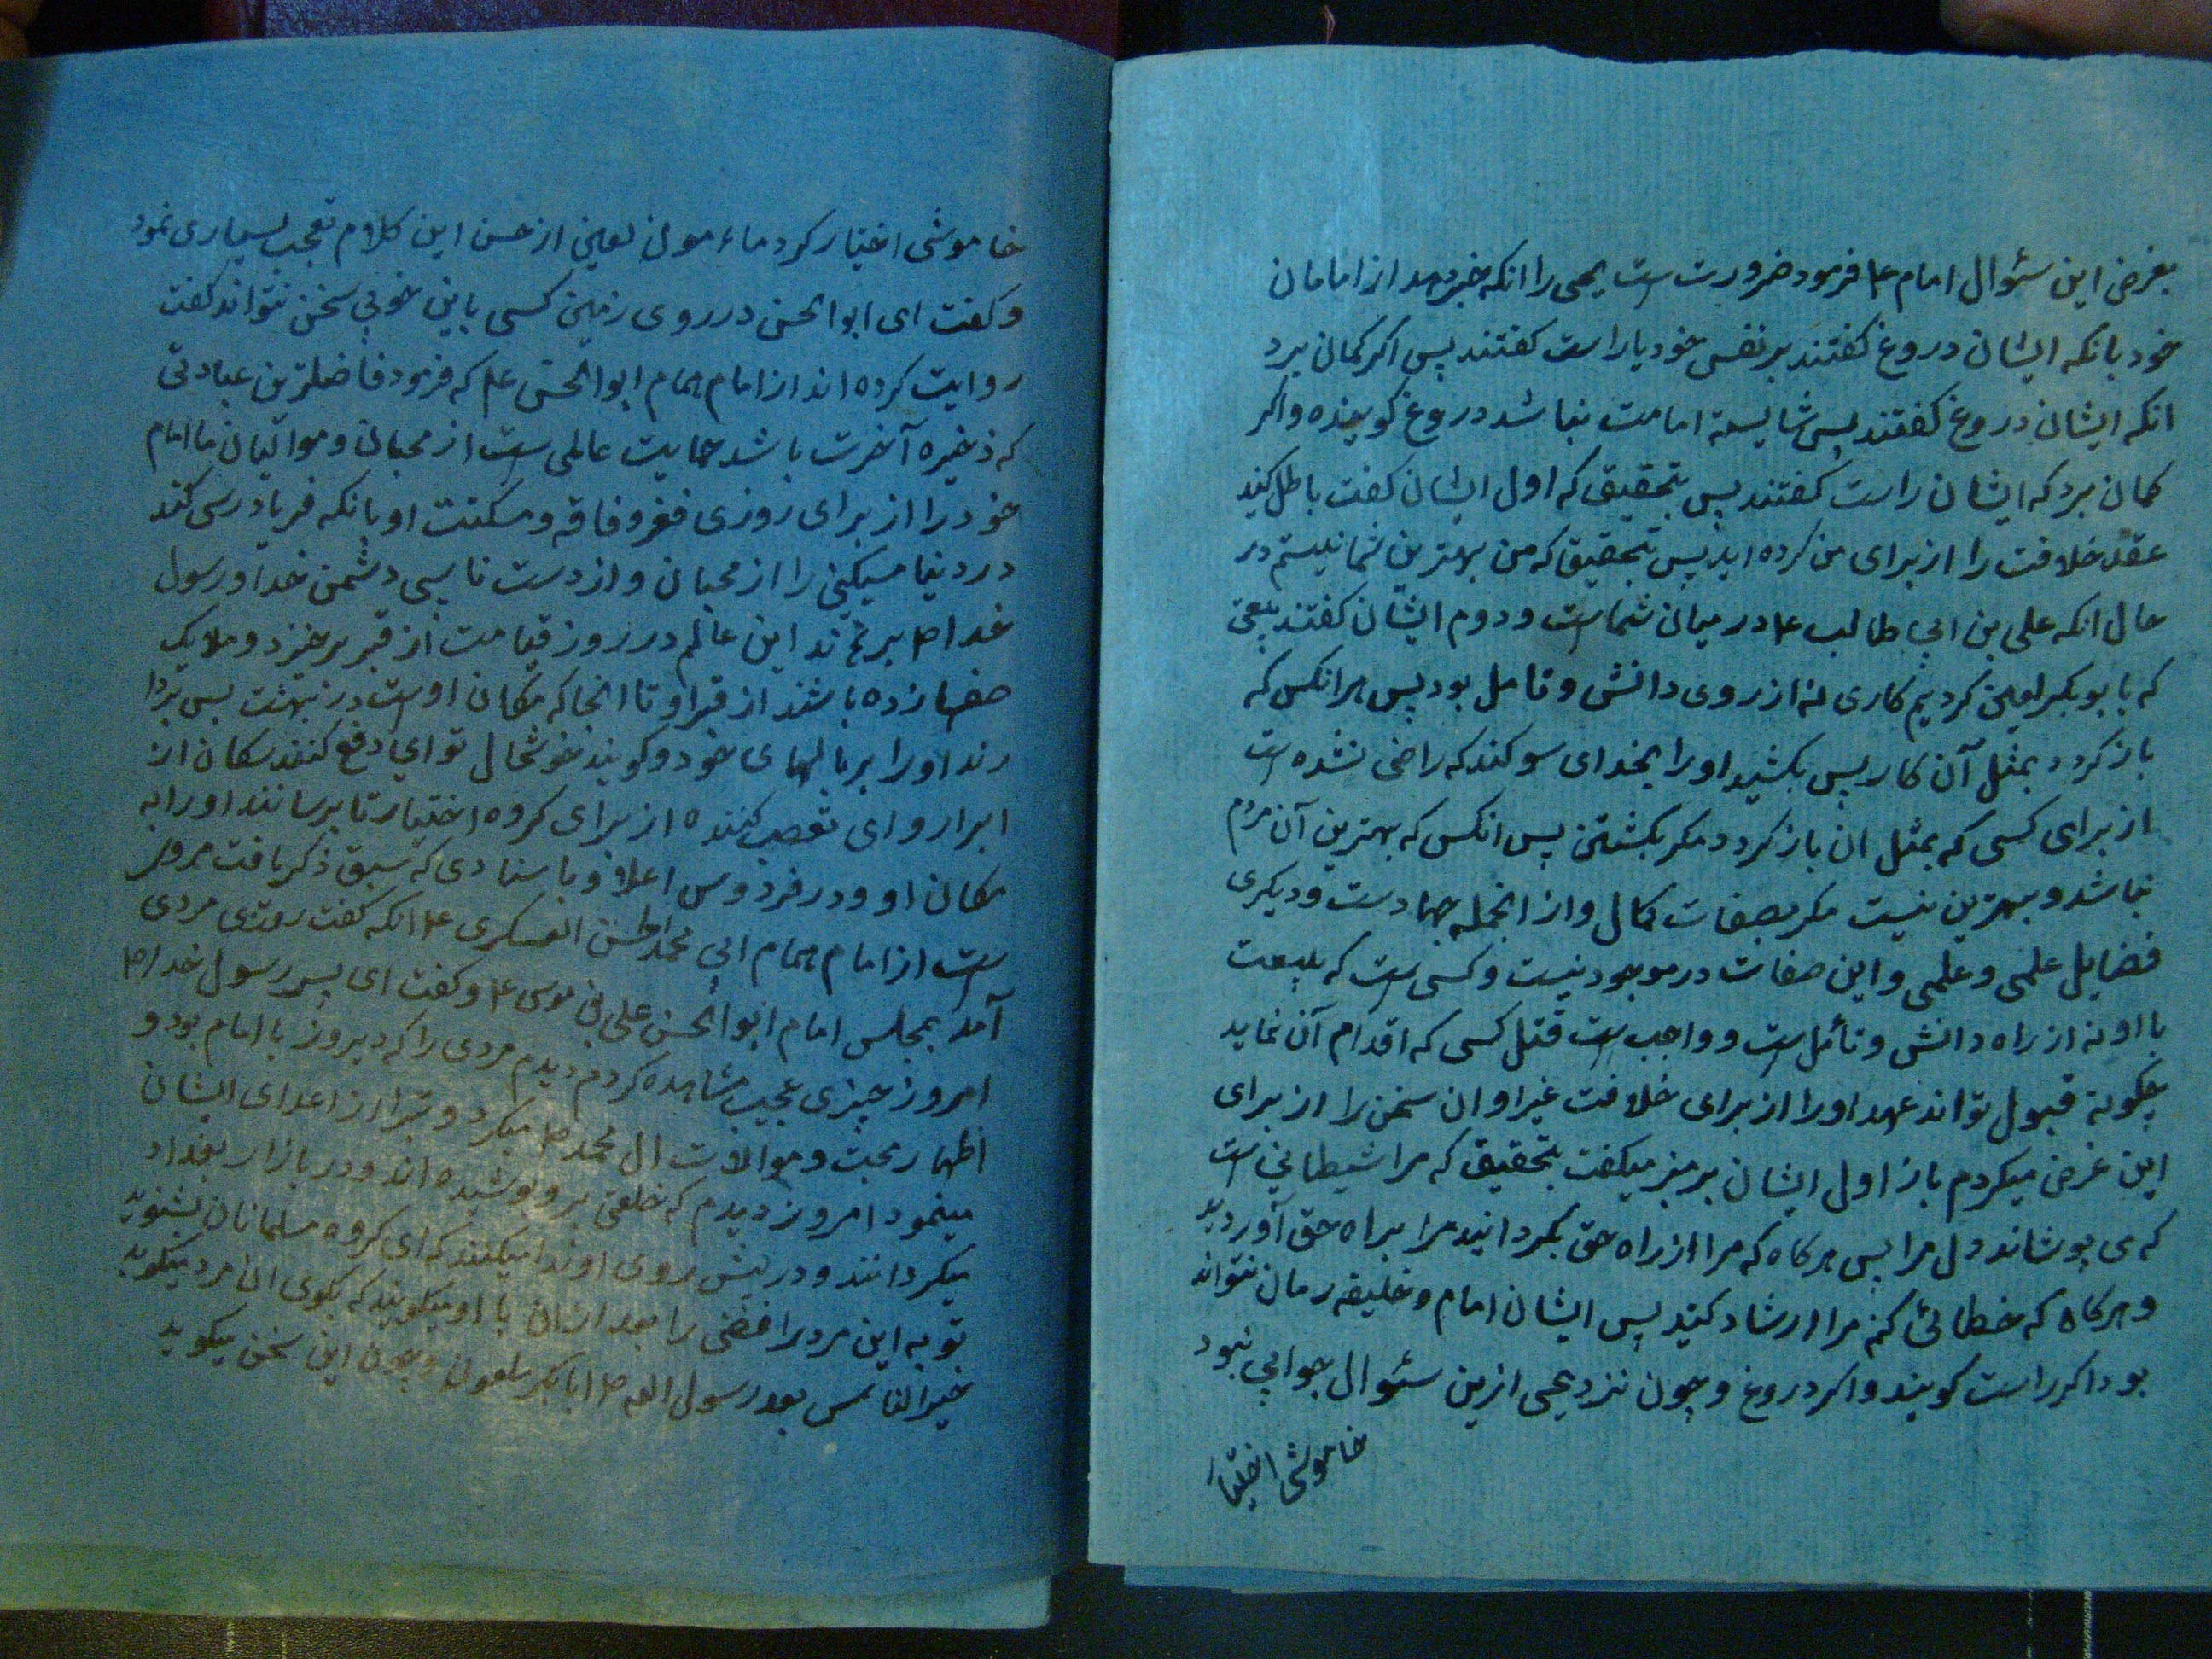 بغرض این سئوال امام ع فرمود ضرورت است یحیی را انکه خبر دهد از امامان
خود بانکه ایشان دروغ کفتند بر نفس خود یا راست کفتند پس اکر کمان برد
انکه ایشان دروغ کفتند پس شایسته امامت نباشد دروغ کوینده واکر
کمان برد که ایشان راست کفتند پس بتحقیق که اول ایشان کفت باطل کنید
عقد خلافت را از برای من کرده اید پس بتحقیق که من بهترین شما نیستم در
حال انکه علی بن ابی طالب ع در میان شماست و دوم ایشان کفتند بیعتی
که با بوبکر لعین کردیم کاری نه از روی دانش و تامل بود پس هر انکس که
باز کردد بمثل آن کار پس بکشید او را بخدای سوکند که راضی نشده است
از برای کسی که بمثل ان باز کردد مکر بکشتن پس انکس که بهترین آن مردم
نباشد و بهترین نیست مکر بصفات کمال و از انجمله جهادست و دیکری
فضایل علمی و عملی و این صفات در موجود نیست و کسی است که بیعت
با او نه از راه دانش و تأمل است و واجب است قتل کسی که اقدام آن نماید
چکونه قبول تواند عهد او را از برای خلافت غیر او ان سخن را از برای
این غرض میکردم باز اول ایشان بر منبر میکفت بتحقیق که مرا شیطانی است
که می پوشاند دل مرا پس هرکاه که مرا از راه حق بکرداند مرا براه حق آورید
و هرکاه که خطائی کنم مرا ارشاد کنید پس ایشان امام و خلیفه رمان نتواند
بود اکر راست کویند و اکر دروغ و چون نزد یحیی ازین سئوال جوابی نبود
خاموشی اختیار
خاموشی اختیار کرد ماءمون لعین از حسن این کلام تعجب بسیاری نمود
و کفت ای ابوالحسن در روی زمین کسی باین خوبی سخن نتواند کفت
روایت کرده اند از امام همام ابوالحسن ع که فرمود فاضلترین عبادتی
که ذخیره آخرت باشد حمایت عالمی است از محبان و موالیان ما امام
خود را از برای روزی فقر و فاقه و مسکنت او بانکه فریادرسی کند
در دنیا مسکینی را از محبان و از دست ناسبی دشمن خدا و رسول
خدا ص برهاند این عالم در روز قیامت از قبر برخیزد و ملایک
صفها زده باشند از قبر او تا انجا که مکان اوست در بهشت پس بردا
رند او را بر بالهای خود و کویند خوشحال تو ای دفع کننده سکان از
ابرار و ای تعصب کننده از برای کروه اختیار تا برسانند او را به
مکان او و در فردوس اعلا و باسنادی که سبق ذکر یافت مرور
است از امام همام ابی محمد الحسن العسکری ع انکه کفت روزی مردی
آمد بمجلس امام ابوالحسن علی بن موسی ع و کفت ای پسر رسول خدا ص
امروز چیزی عجیب مشاهده کردم دیدم مردی را که دیروز با امام بود و
اظهار محبت و موالات ال محمد ص میکرد و تبرا از اعدای ایشان
مینمود امروز دیدم که خلعتی برو پوشیده اند و در بازار بغداد
میکردانند و در پیش روی او ندا میکنند که ای کروه مسلمانان بشنوید
توبه این مرد رافضی را بعد ازان با او میکویند که بکوی ان مرد میکوید
خیر الناس بعد رسول الله ص ابابکر ملعون و چون این سخن میکوید